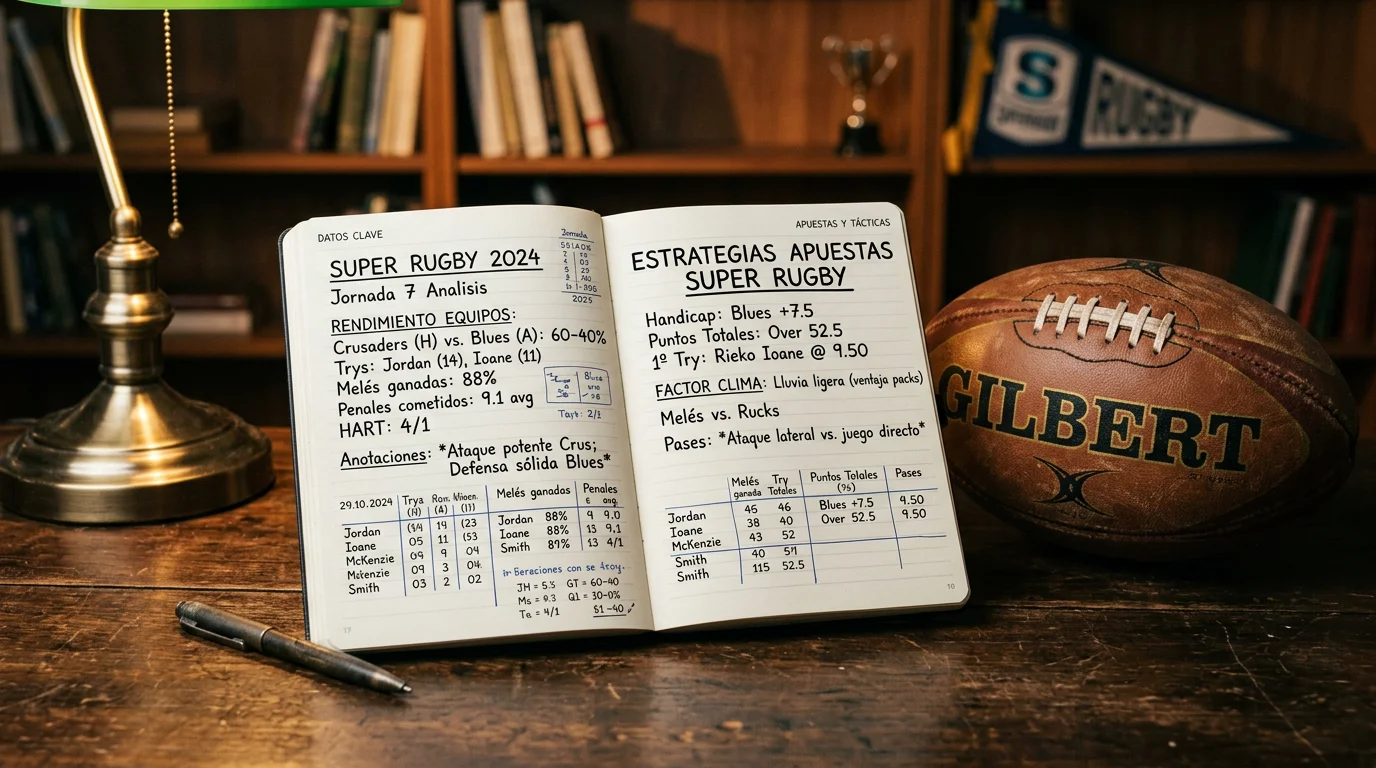 DATOS CLAVE
SUPER RUGBY 2024
Jornada 7 Analisis
RENDIMIENTO EQUIPOS:
Crusaders (H) vs. Blues (A): 60-40%
Trys: Jordan (14), Ioane (11)
Melés ganadas: 88%
Penales cometidos: 9.1 avg
HART: 4/1
Anotaciones: *Ataque potente Crus;
Defensa sólida Blues*
2025
29.10.2024 Trya Melés ganadas Penales
Jordan 14 (23 Jordan 88% 9 9.0
Ioane 05 11 (53 Ioane 88% 13 9.1
McKenzie 09 9 04 Smith 87% 13 4/1
09 3 04
Smith 03 2 02
JH = 5.5 GT = 60-40
Ms = 9.3 Q1 = 30-0%
Te = 4/1 $1-40
APUESTAS Y TÁCTICAS
ESTRATEGIAS APUESTAS
SUPER RUGBY
Handicap: Blues +7.5
Puntos Totales: Over 52.5
1º Try: Rieko Ioane @ 9.50
FACTOR CLIMA: Lluvia ligera (ventaja packs)
Melés vs. Rucks
Pases: *Ataque lateral vs. juego directo*
Melés ganada Try Totales Puntos Totales (%) Pases
Jordan 45 46 Blues +7.5 9.50
Ioane 38 40 Over 52.5 9.50
McKenzie 43 52
Smith 40
Smith 115 52.5
10
S
RUGBY
GILBERT